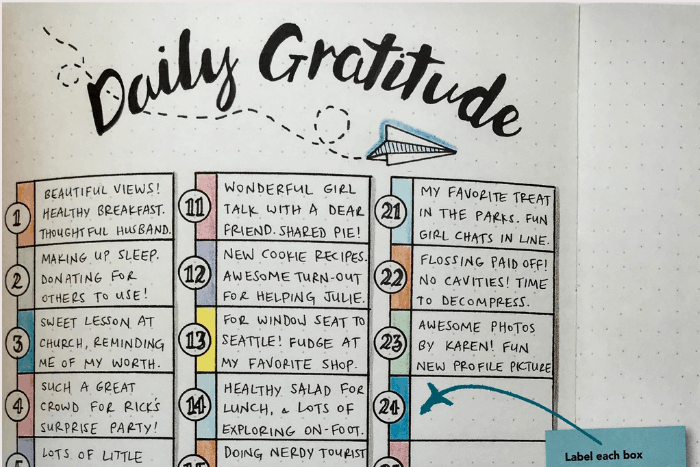 Daily Gratitude
1
BEAUTIFUL VIEWS!
HEALTHY BREAKFAST.
THOUGHTFUL HUSBAND.
2
MAKING UP SLEEP.
DONATING FOR
OTHERS TO USE!
3
SWEET LESSON AT
CHURCH, REMINDING
ME OF MY WORTH.
4
SUCH A GREAT
CROWD FOR RICK'S
SURPRISE PARTY!
5
LOTS OF LITTLE
11
WONDERFUL GIRL
TALK WITH A DEAR
FRIEND. SHARED PIE!
12
NEW COOKIE RECIPES.
AWESOME TURN-OUT
FOR HELPING JULIE.
13
FOR WINDOW SEAT TO
SEATTLE! FUDGE AT
MY FAVORITE SHOP.
14
HEALTHY SALAD FOR
LUNCH, & LOTS OF
EXPLORING ON-FOOT.
15
DOING NERDY TOURIST
21
MY FAVORITE TREAT
IN THE PARKS. FUN
GIRL CHATS IN LINE.
22
FLOSSING PAID OFF!
NO CAVITIES! TIME
TO DECOMPRESS.
23
AWESOME PHOTOS
BY KAREN! FUN
NEW PROFILE PICTURE
24
Label each box